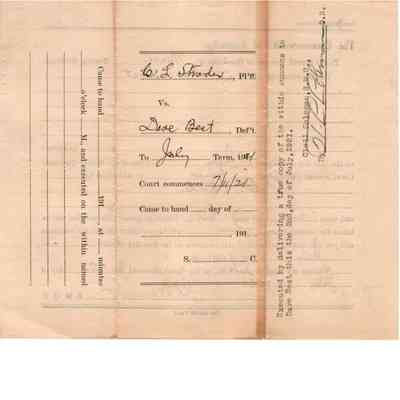 Came to hand 191 at minutes
o'clock M., and executed on the within named
C. L. Strader, Pl'ff.
Vs.
Dave Best, Def't.
To July Term, 191
Court commences 7/11/21
Came to hand day of
191
S. C.
Executed by delivering a true copy of the within summons to
Dave Best this the 2nd, day of July, 1921.
D.S.